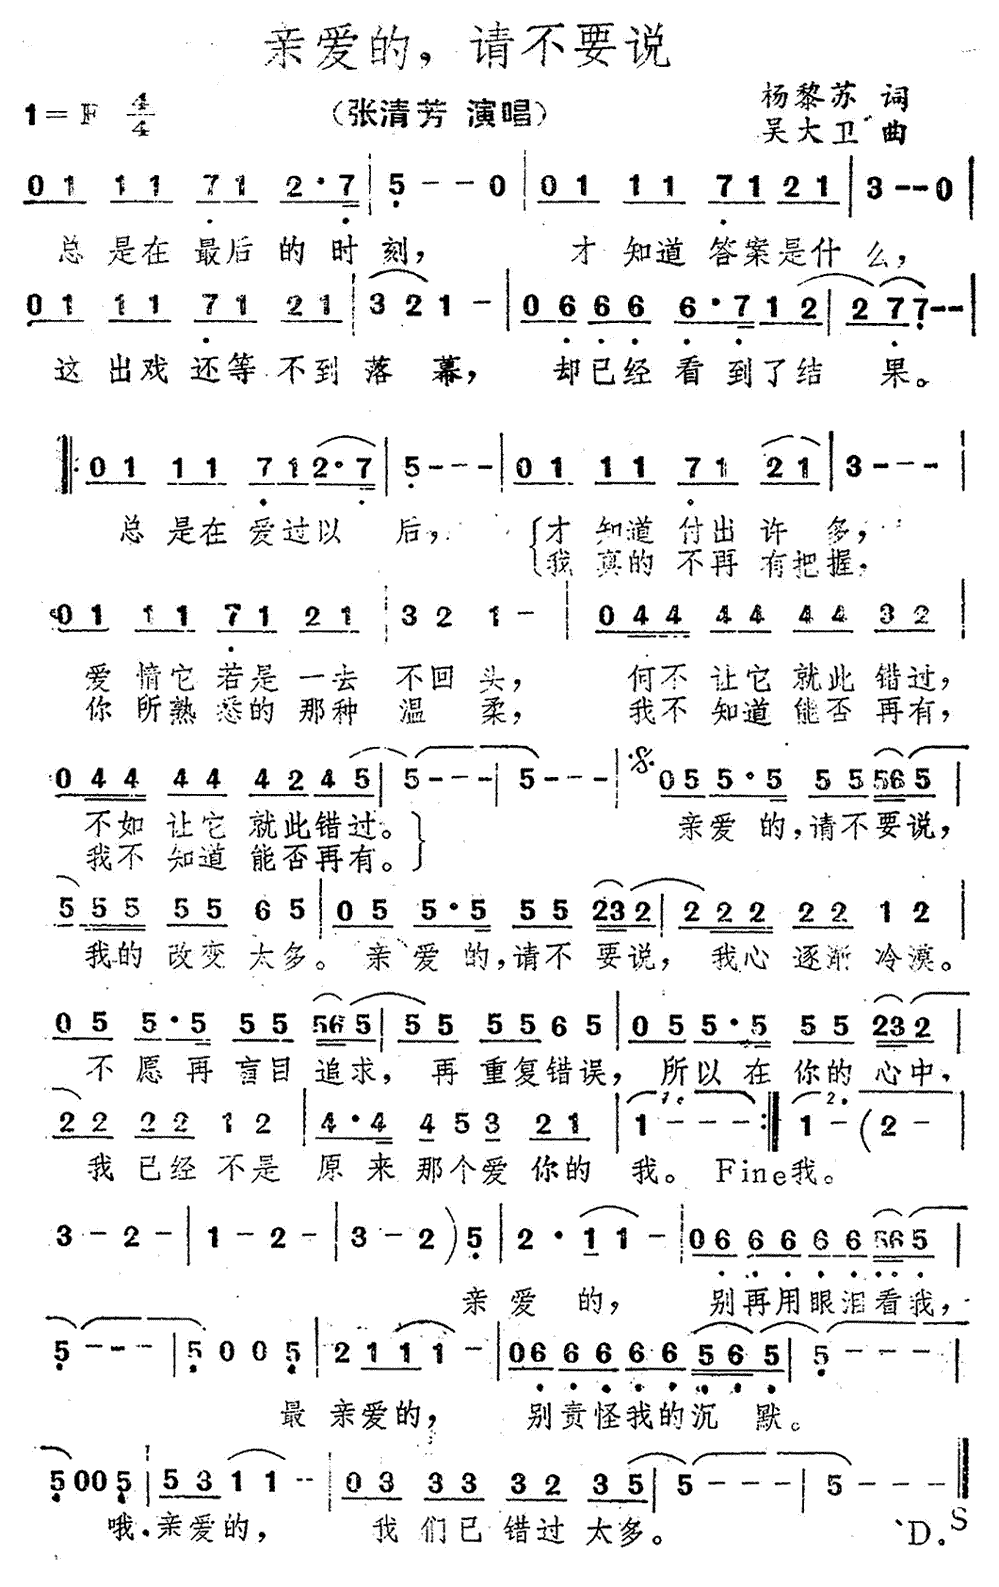 亲爱的，请不要说
1=F 4/4
（张清芳 演唱）
杨黎苏 词
吴大卫 曲
01 11 71 2·7 | 5--0 | 01 11 7121 | 3--0 |
总是在最后的时刻， 才知道答案是什么，
01 11 71 21 | 321- | 0666 6·712 | 277-- |
这出戏还等不到落幕， 却已经看到了结果。
‖: 01 11 712·7 | 5--- | 01 11 71 21 | 3--- |
总是在爱过以后， 才知道付出许多，
我真的不再有把握，
01 11 71 21 | 3 2 1 - | 044 44 44 32 |
爱情它若是一去不回头， 何不让它就此错过，
你所熟悉的那种温柔， 我不知道能否再有，
044 44 4245 | 5--- | 5--- | 055·5 55565 |
不如让它就此错过。 亲爱的，请不要说，
我不知道能否再有。
555 55 65 | 05 5·5 55 232 | 222 22 12
我的改变太多。亲爱的，请不要说，我心逐渐冷漠。
05 5·5 55 565 | 55 5565 | 055·5 55 232 |
不愿再盲目追求，再重复错误，所以在你的心中，
22 22 12 | 4·4 453 21 | 1--- :‖ 1-(2-
1. 2.
我已经不是原来那个爱你的我。Fine我。
3-2- | 1-2- | 3-2) 5 | 2·11- | 066666565 |
亲爱的， 别再用眼泪看我，
5--- | 5005 | 2111- | 06 6666 565 | 5---
最亲爱的， 别责怪我的沉默。
5005 | 5311-- | 03 33 32 35 | 5--- | 5--- ‖
哦·亲爱的， 我们已错过太多。 D.S